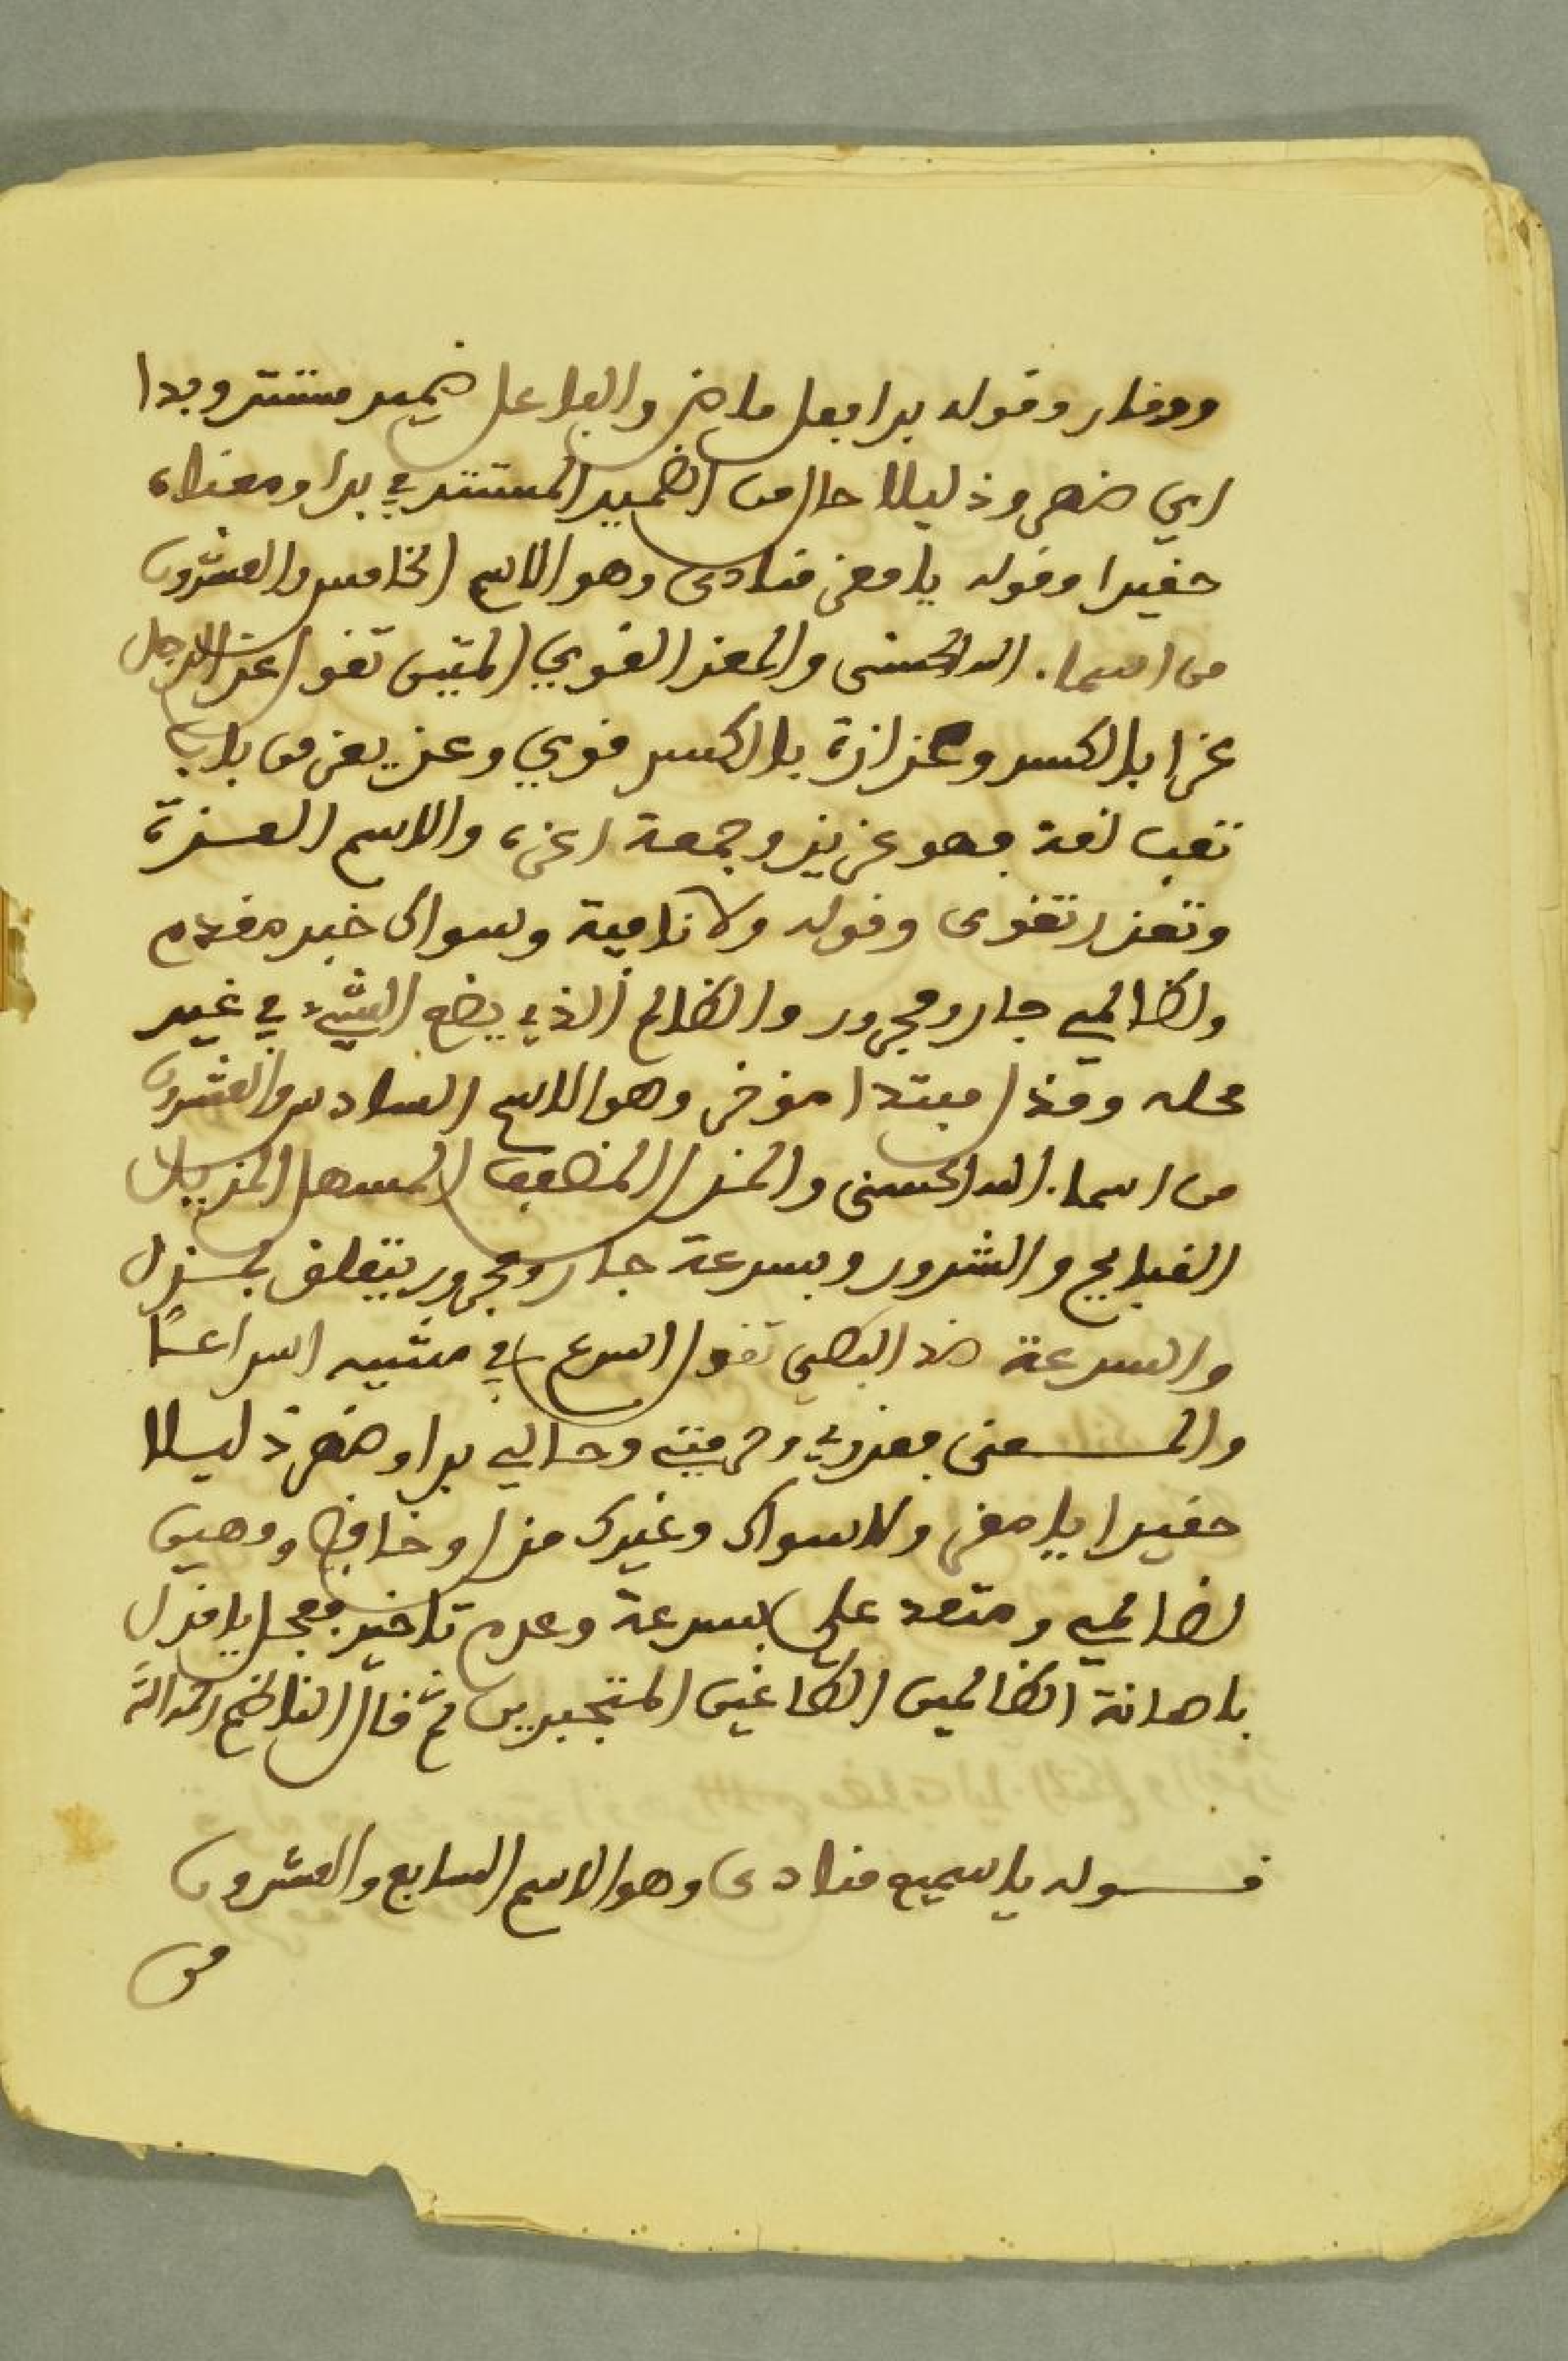 ووقار وقوله بدا فعل ماض والفاعل ضمير مستتر وبدا
اي ضهر وذليلا حال من الضمير المستتر في بدا ومعناه
حقيرا وقوله يا معز منادى وهو الاسم الخامس والعشرون
من اسماء الله الحسنى والمعز القوي المتين تقول عز الرجل
عزا بالكسر وعزازة بالكسر قوي وعز يعز من باب
تعب لغة فهو عزيز وجمعه اعزه والاسم العزة
وتعزز تقوى وقوله ولا نافية وسواك خبر مقدم
ولظالمي جار ومجرور والظالم الذي يضع الشيء في غير
محله ومذل مبتدا مؤخر وهو الاسم السادس والعشرون
من اسماء الله الحسنى والمذل المضعف المسهل المزيل
القبايح والشرور وبسرعة جار ومجرور يتعلق بمذل
والسرعة ضد البطي تقول اسرع في مشيه اسراعًا
والمعنى فعزوي وحرمتي وحالي بدا وضهر ذليلا
حقيرا يا معز ولا سواك وغيرك مذل وخافض ومهين
لظالمي ومتعد علي بسرعة وعدم تاخير فعجل يا مذل
باهانة الظالمين الطاغين المتجبرين ثم قال الناظم رحمه الله
قوله يا سميع منادى وهو الاسم السابع والعشرون
من